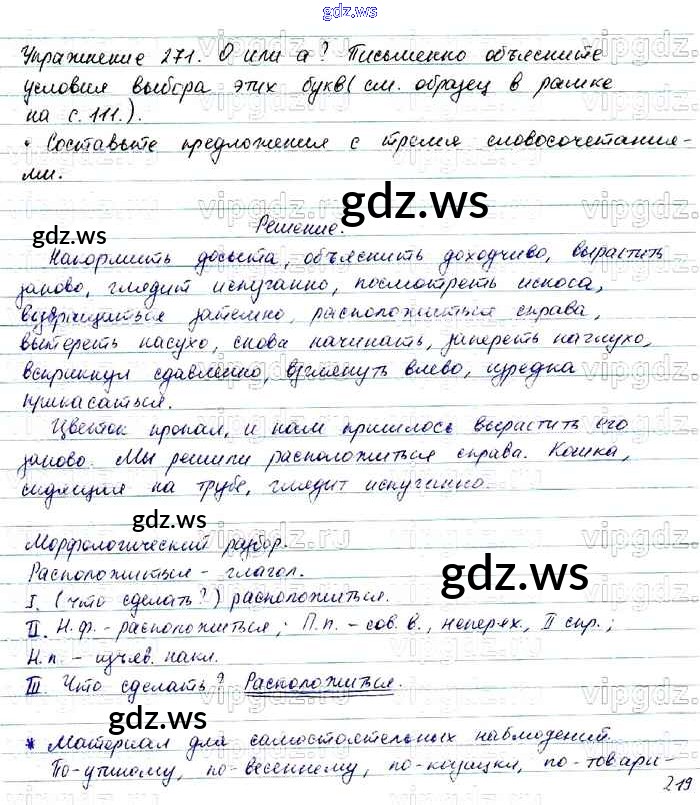 gdz.ws
Упражнение 271. О или а? Письменно объясните
условия выбора этих букв (см. образец в рамке
на с. 111.).
• Составьте предложения с тремя словосочетания-
ми.
gdz.ws
Решение.
Накормить досыта, объяснить доходчиво, вырастить
заново, глядит испуганно, посмотреть искоса,
возвращаться затемно, расположиться справа,
вытереть насухо, снова начинать, запереть наглухо,
вскрикнул сдавленно, взглянуть влево, изредка
прикасаться.
Цветок пропал, и нам пришлось вырастить его
заново. Мы решили расположиться справа. Кошка,
сидящая на трубе, глядит испуганно.
gdz.ws
Морфологический разбор.
gdz.ws
Расположиться - глагол.
I. (Что сделать?) расположиться.
II. Н.ф. - расположиться; П.п. - сов. в., неперех., II спр.;
Н.п. - изъяв. накл.
III. Что сделать? Расположиться.
gdz.ws
* Материал для самостоятельных наблюдений.
По-утиному, по-весеннему, по-казацки, по-товари-
219